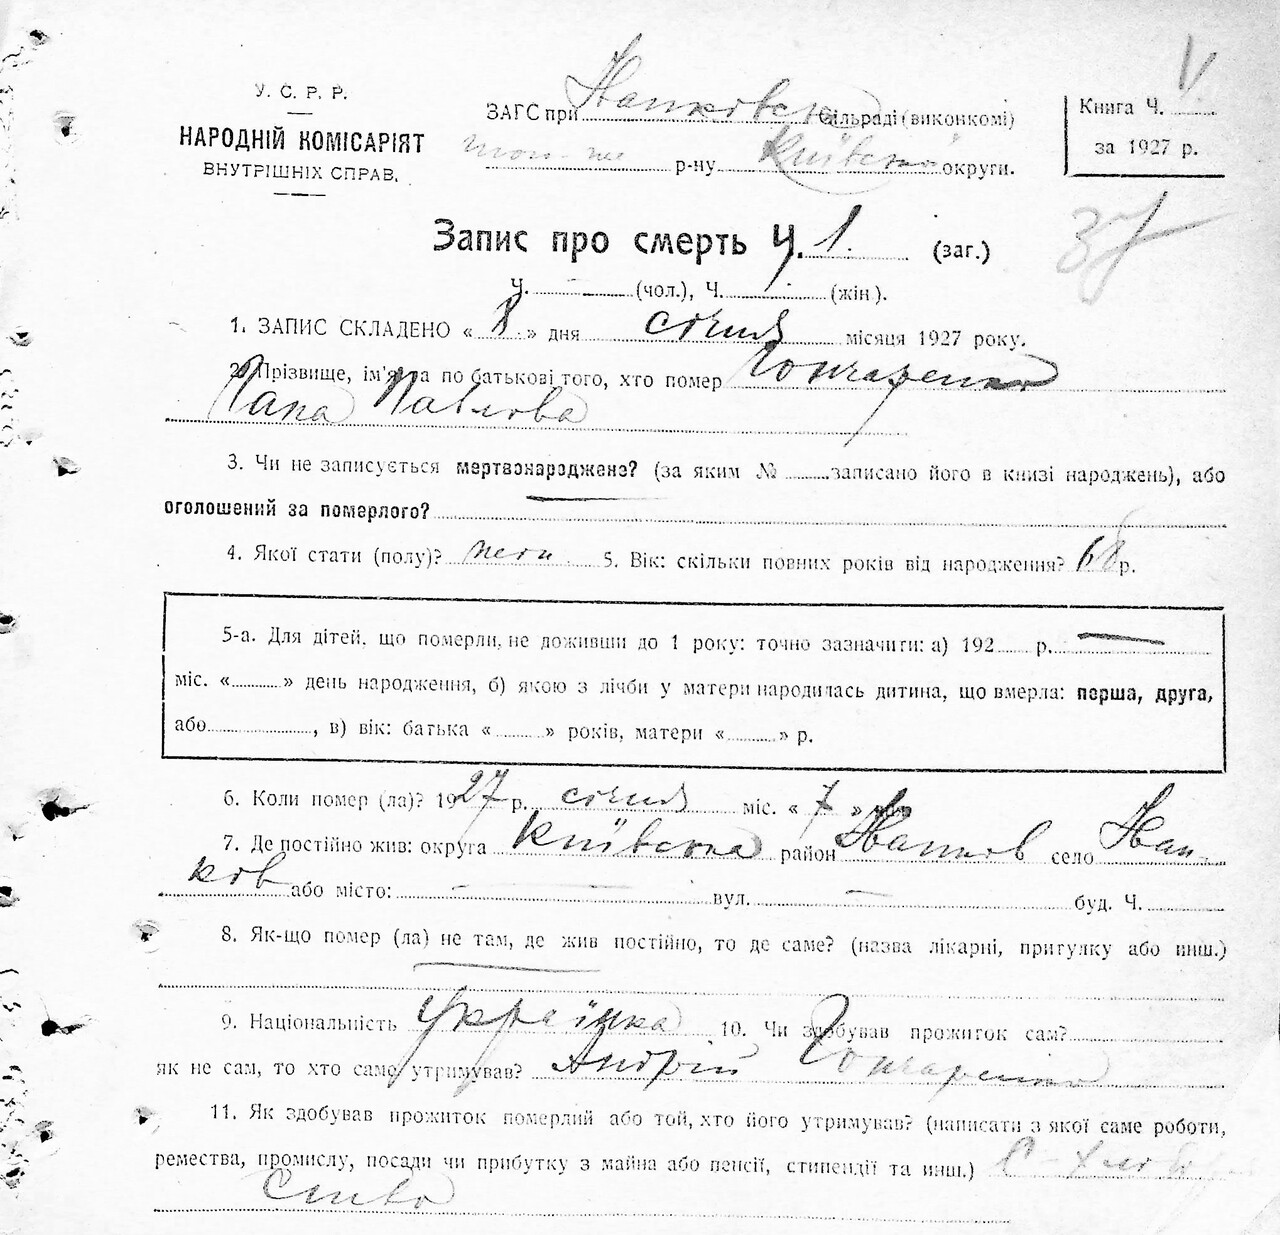 У. С. Р. Р.
НАРОДНІЙ КОМІСАРІЯТ
ВНУТРІШНІХ СПРАВ.
ЗАГС при Сільраді (виконкомі)
р-ну Київської округи.
Книга Ч.
за 1927 р.
Запис про смерть Ч. 1. (заг.)
Ч. — (чол.), Ч. 1. (жін.).
1. ЗАПИС СКЛАДЕНО « 8 » дня січня місяця 1927 року.
2. Прізвище, ім'я та по батькові того, хто помер Гончаренко
Гапка Павлова
3. Чи не записується мертвонароджене? (за яким № записано його в книзі народжень), або
оголошений за померлого?
4. Якої стати (полу)? 5. Вік: скільки повних років від народження? 68 р.
5-а. Для дітей, що померли, не доживши до 1 року: точно зазначити: а) 192 р. —
міс. « » день народження, б) якою з лічби у матери народилась дитина, що вмерла: перша, друга,
або , в) вік: батька « » років, матери « » р.
6. Коли помер (ла)? 1927 р. січня міс. « 7 » дня
7. Де постійно жив: округа Київська район село
або місто: — вул. — буд. Ч.
8. Як-що помер (ла) не там, де жив постійно, то де саме? (назва лікарні, притулку або инш.)
9. Національність Українка 10. Чи здобував прожиток сам?
як не сам, то хто саме утримував? Андрій Гончаренко
11. Як здобував прожиток померлий або той, хто його утримував? (написати з якої саме роботи,
ремества, промислу, посади чи прибутку з майна або пенсії, стипендії та инш.) С-хлібороб
ство